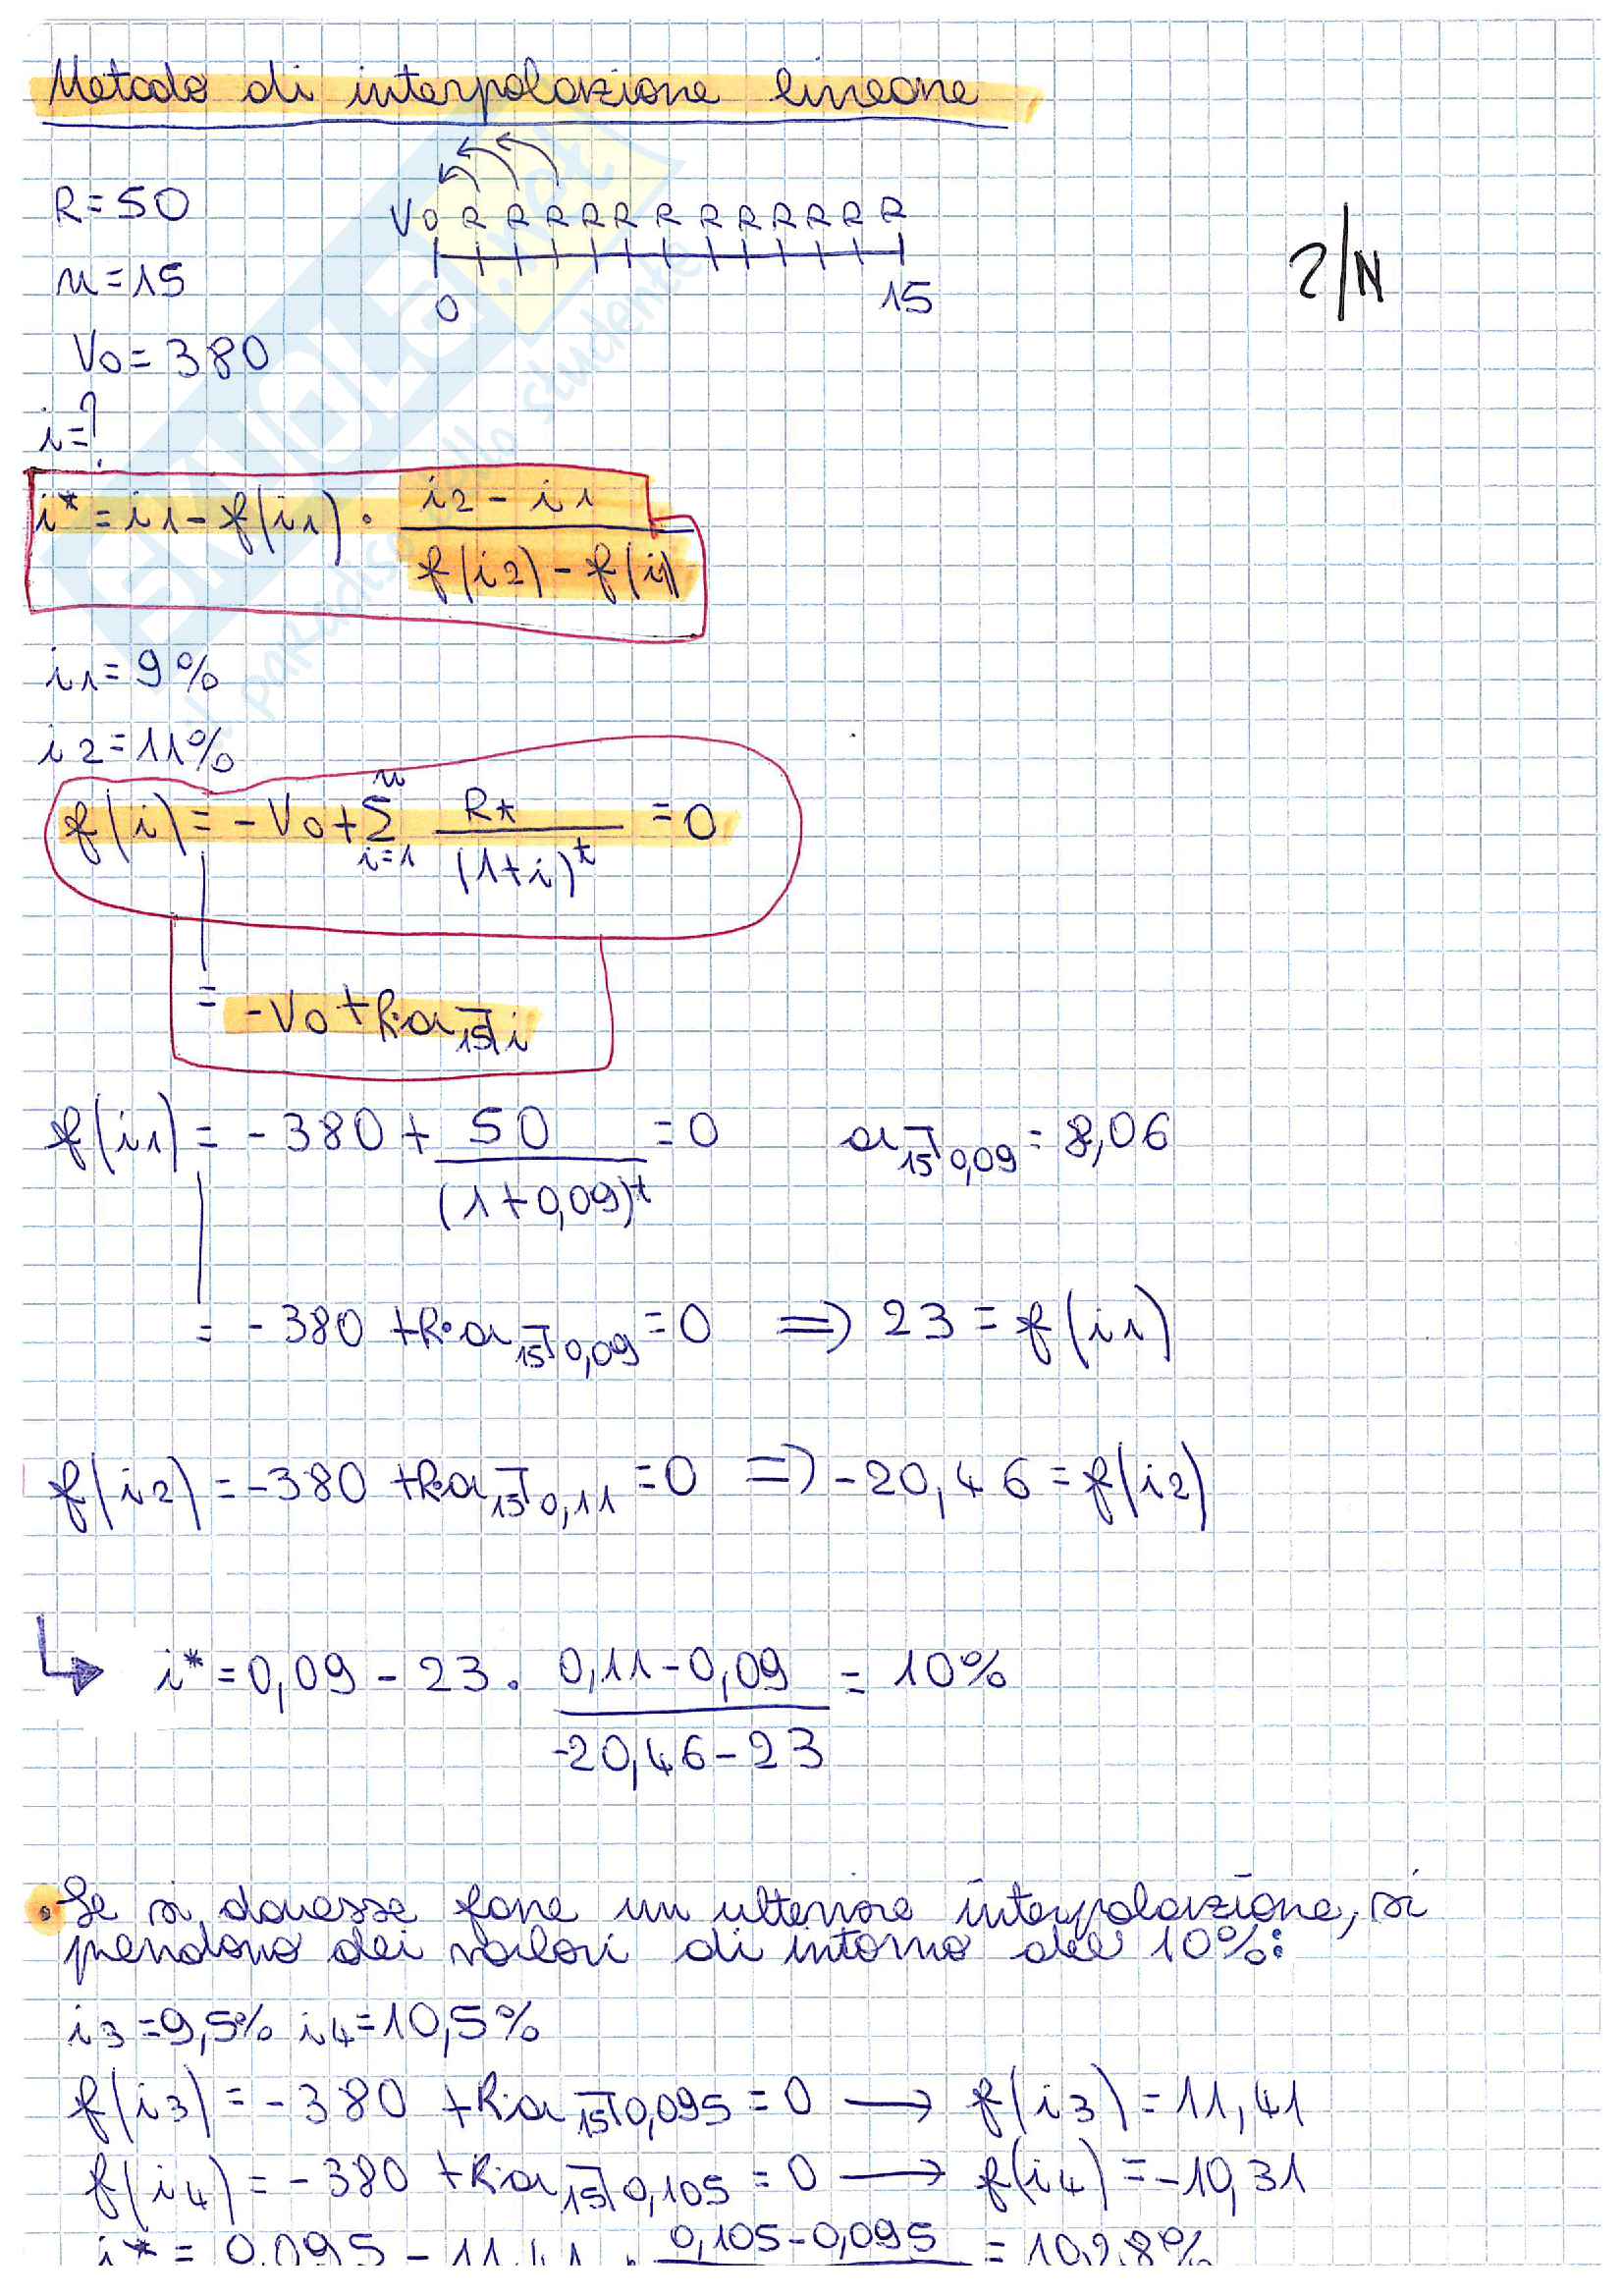 Metodo di interpolazione lineare
R=50
V0 R R R R R R R R R R R R
n=15
0 15
2/N
V0=380
i=?
i* = i1 - f(i1) · (i2 - i1) / (f(i2) - f(i1))
i1=9%
i2=11%
f(i) = -V0 + Σ_{i=1}^{n} R* / (1+i)^t = 0
= -V0 + R·a_{15⌉i}
f(i1) = -380 + 50 / (1+0,09)^t = 0 a_{15⌉0,09} = 8,06
= -380 + R·a_{15⌉0,09} = 0 => 23 = f(i1)
f(i2) = -380 + R·a_{15⌉0,11} = 0 => -20,46 = f(i2)
i* = 0,09 - 23 · (0,11-0,09) / (-20,46-23) = 10%
• Se si dovesse fare un ulteriore interpolazione, si
prendono dei valori di intorno del 10%:
i3=9,5% i4=10,5%
f(i3) = -380 + R·a_{15⌉0,095} = 0 → f(i3) = 11,41
f(i4) = -380 + R·a_{15⌉0,105} = 0 → f(i4) = -10,31
i* = 0,095 - 11,41 · 0,105-0,095 = 10,28%